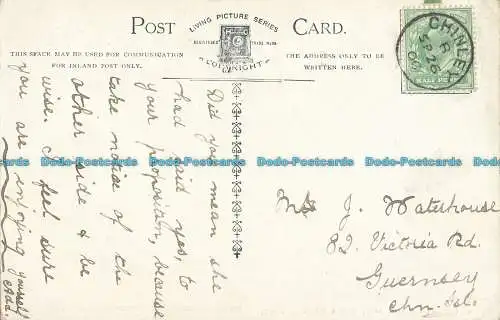 POST CARD.
LIVING PICTURE SERIES
REGISTERED TRADE MARK
COPYRIGHT
THIS SPACE MAY BE USED FOR COMMUNICATION
FOR INLAND POST ONLY.
THE ADDRESS ONLY TO BE
WRITTEN HERE.
CHINLEY
SP 26
HALFPENNY
Did you mean she
had said yes, to
your proposition, because
take notice of the
other side & be
wise. I feel sure
you are enjoying yourself
J. Waterhouse
82. Victoria Rd.
Guernsey
Chn. Isl.
Dodo-Postcards Dodo-Postcards Dodo-Postcards Dodo-Postcards Dodo-Postcards